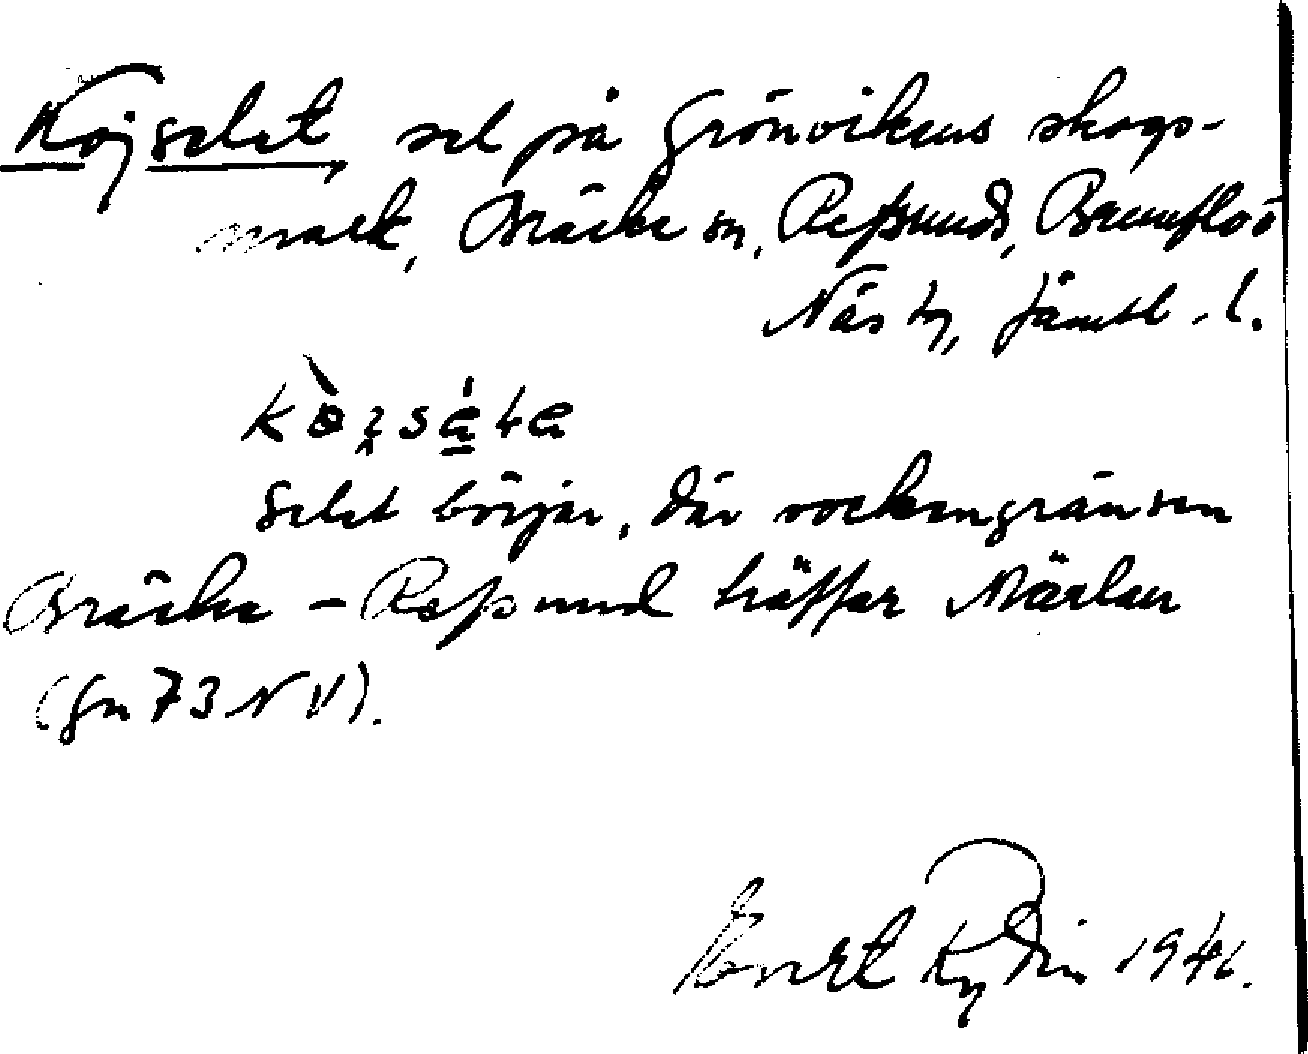 Kojselet, sel på Grönvikens skogs-
mark, Bräcke sn, Refsunds, Brunflo o
Näs tg, Jämtl. l.
Selet börjar, där sockengränsen
Bräcke - Refsund träffar Märlan
(Gn 73 NV).
Evert Rydin 1941.